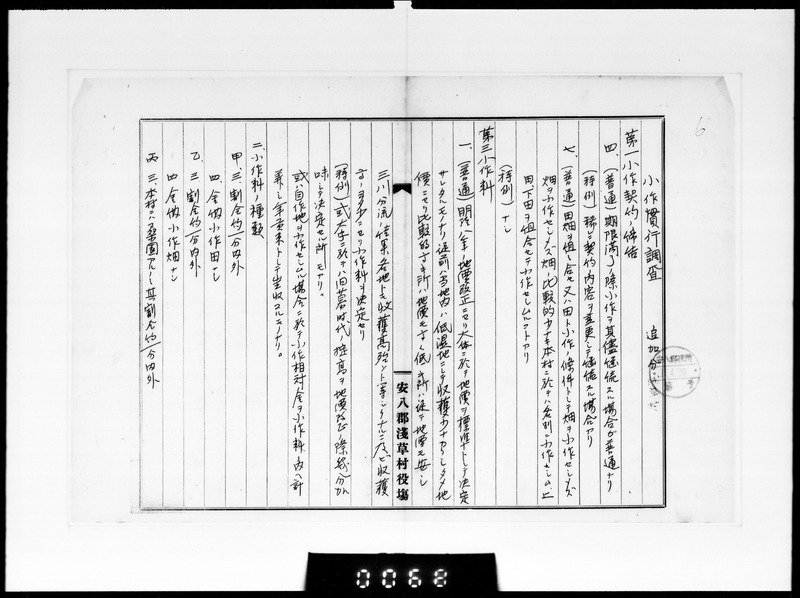 小作慣行調査 追加分
第一小作契約ノ締結
四、(普通)期限満了ノ際小作ヲ其儘継続スル場合ガ普通ナリ
(特例)稀ニ契約内容ヲ変更シテ継続スル場合アリ
七、(普通)田畑ヲ組ミ合セ又ハ田ト小作ノ条件トシテ畑ヲ小作セシメズ
畑ヲ小作セシメズ畑ノ比較的少ナキ本村ニ於テハ各別ニ小作セシム、上
田下田ヲ組合セテ小作セシムルコトアリ
(特例)ナシ
第三小作料
一、(普通)明治八年ノ地価改正ニヨリ大体ニ於テ地価ヲ標準トシテ決定
サレタルモノナリ従前ハ当地内ハ低湿地ニシテ収穫少ナカリシタメ地
価ニヨリ比較的高キ所ハ地価モ高ク低キ所ハ従テ地価モ安シ
三川分流ノ結果各地トモ収穫高殆ント等シクナルニ及ビ収穫
高ノ多少ニヨリ小作料ヲ決定セリ
(特例)或大字ニ於テハ旧幕時代ノ控高ヲ地価改正ノ際幾分加
味シテ決定セル所モアリ。
或ハ自作地ヲ小作セシムル場合ニ於テ小作相対金ヲ小作料ノ内ヘ計
算シ年貢米トシテ出収スルモノアリ。
二、小作料ノ種類
甲、三、割合約一分内外
四、全俵小作田ナシ
乙、三、割合約一分内外
四、全俵小作畑ナシ
丙、三、本村ニハ桑園アルモ其割合約一分内外
安八郡浅草村役場
6
0068